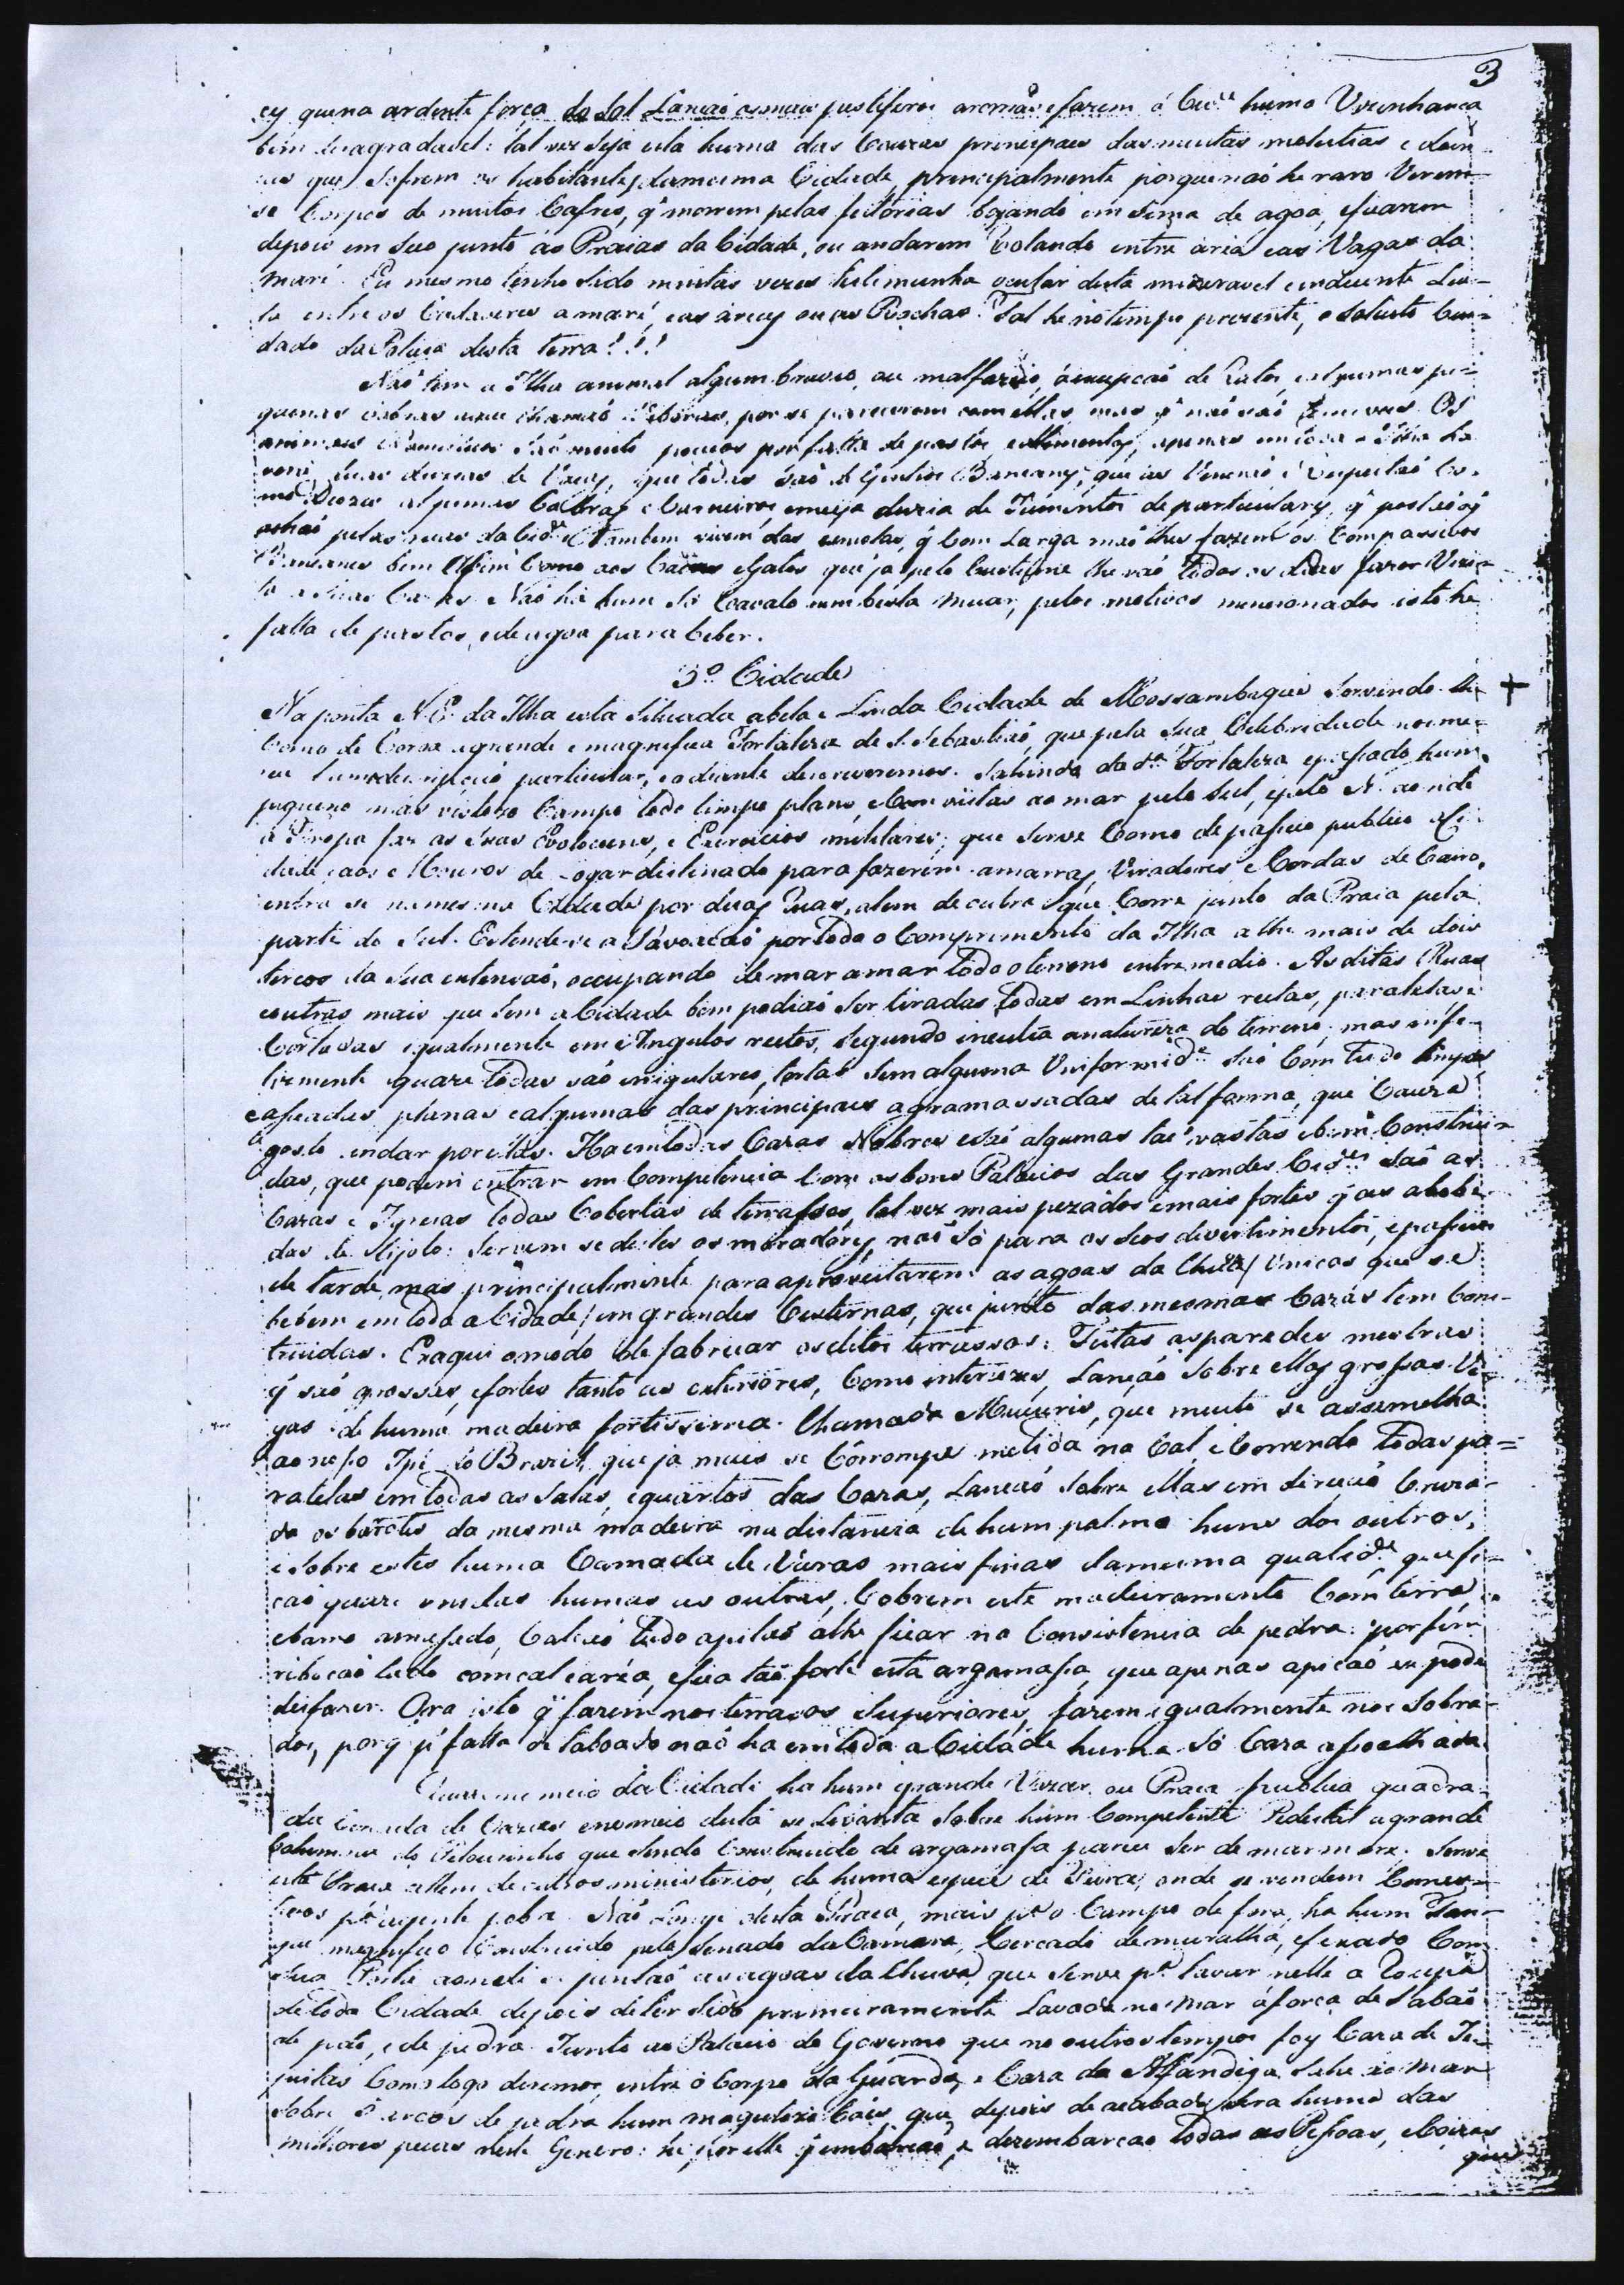 3
ey que na ardente força do Sol Lançaõ os mais pestiferos aromas e fazem á Cid.e huma Visinhança
bem desagradavel: tal vez seja esta huma das Cauzas principaes das muitas molestias e doen-
ças que sofrem os habitantes da mesma Cidade, principalmente porque naõ he raro Verem-
se Corpos de muitos Cafres, q̃ morrem pelas feitorias boyando em Sima de agoa, e ficarem
depois em Seco junto ás Praias da Cidade, ou andarem Rolando entre aria e as Vagas da
maré. Eu mesmo tenho sido muitas vezes testimunha ocular desta mizeravel e indecente Lu-
ta entre os Cadaveres a maré, e as áreas ou as Rochas. Tal he no tempo prezente, o Solicito Cui-
dado da Policia desta terra!!!
Naõ tem a Ilha animal algum bravio, ou malfazejo, á excepcaõ de Ratos, e algumas pe-
quenas cobras que chamaõ Viboras, por se parecerem com ellas, mas q̃ naõ saõ venenosas. Os
animaes domesticos saõ muito poucos por falta de pastos, e alimentos, apenas em toda a Ilha ha-
verá duas duzias de Vacas, que todas saõ de Gentios Baneanes, que as Veneraõ e Respeitaõ Co-
mo Deozas algumas Cabras e Carneiros e meya duzia de Jumentos de particulares, q̃
pelas ruas da Cid.e e tambem vivem das esmolas, q̃ Com Larga maõ lhes fazem os Compassivos
Baneanes bem Assim Como aos Caens e Gatos que já pelo Custume lhe vaõ todos os dias fazer Vizi-
ta a suas Cazas. Naõ há hum só Cavalo nem besta Muar, pelos motivos mencionados isto he
falta de pastos, e de agoa para beber.
3º Cidade
Na ponta N.E. da Ilha esta Situada a bela e Linda Cidade de Mossambique Servindo-lhe +
Como de Coroa a grande e magnifica Fortaleza de S. Sebastiaõ, que pela Sua Celebridade merece
huma descripçaõ particular, e adiante descreveremos. Sahindo da d.a Fortaleza e passado hum
pequeno mas vistozo Campo todo limpo plano, e Com vistas ao mar pelo Sul, e pelo N. aonde
a Tropa faz as Suas Evoluçoens, e Exercicios militares; que Serve Como de passeio publico á Ci-
dade, e aos Mouros de Logar destinado para fazerem amarras, Viradores e Cordas de Cairo,
entra se na mesma Cidade por duas Ruas, alem de outra que Corre junto da Praia pela
parte do Sul. Estende-se a Povoaçaõ por todo o Comprimento da Ilha athe mais de dois
terços da Sua extensaõ, occupando de mar a mar todo o terreno entremedio. As ditas Ruas
e outras mais que tem a Cidade bem podiaõ Ser tiradas todas em Linhas rectas, paralelas e
Cortadas igualmente em Angulos rectos, Segundo inculca a natureza do terreno, mas infe-
lizmente quaze todas saõ irregulares, tortas Sem alguma Uniformid.e Saõ Com tudo limpas
e aseadas planas e algumas das principaes agramassadas de tal forma, que Cauza
gosto andar por ellas. Ha em todas Cazas Nobres e saõ algumas taõ vastas e bem Construi-
das, que podem entrar em Competencia Com os bons Palacios das Grandes Cid.es Saõ as
Cazas e Igrejas todas Cobertas de terrassos, tal vez mais pezados e mais fortes q̃ as abobe-
das de tijolo: Servem se delles os moradores, naõ só para os Seos divertimentos, e passeios
de tarde, mas principalmente para aproveitarem as agoas da Chuva/ Unicas que se
bebem em toda a Cidade/ em grandes Cisternas, que junto das mesmas Cazas tem Cons-
truidas. Eraqui o modo de fabricar os ditos terrassos: Feitas as paredes mestras
q̃ saõ grossas, e fortes tanto as exteriores, Como interiores, Lançaõ Sobre ellas grossas Vi-
gas de huma madeira fortissima Chamada Mucuris, que muito se assemelha
ao nosso Ipé do Brazil, que já mais se Corrompe metida na Cal, e Correndo todas pa-
ralelas em todas as Salas, e quartos das Cazas, Lançaõ Sobre ellas em direçaõ Cruza-
da os barrotes da mesma madeira na distancia de hum palmo huns dos outros,
e Sobre estes huma Camada de Varas mais finas da mesma qualid.e que fi-
caõ quaze unidas humas as outras, Cobrem este madeiramento Com terra,
e barro amassado, Calcaõ tudo a pilaõ athe ficar na Consistencia de pedra: por fim
rebocaõ tudo com cal e aréa, e fica taõ forte esta argamassa, que apenas a picaõ se pode
desfazer. Ora isto q̃ fazem nos terraços Superiores, fazem igualmente nos Sobra-
dos, porq̃ p.r falta de taboado naõ ha em toda a Cidade huma só Caza assoalhada.
Quaze no meio da Cidade ha hum grande Bazar, ou Praça publica quadra-
da Cercada de Cazas e no meio desta se Levanta Sobre hum Competente Pedestal a grande
Columna do Pelourinho que Sendo Construido de argamassa parece Ser de marmore. Serve
esta Praça alem de outros ministerios, de huma especie de Feira, onde se vendem Comes-
tivos p.a a gente pobre. Naõ Longe desta Praça, mais p.a o Campo de fora, ha hum Tan-
que magnifico Construido pelo Senado da Camara, Cercado de muralha, e fexado Com
Sua Porta aonde se juntaõ as agoas da Chuva, que Serve p.a lavar nelle a Roupa
de toda Cidade depois de ter sido primeiramente Lavada no mar á força de Sabaõ
de páo, e de pedra. Junto ao Palacio do Governo que no outros tempos foy Caza de Je-
zuitas Como logo diremos, entre o Corpo da Guarda, e Caza da Alfandiga Sahe ao mar
Sobre arcos de pedra hum magestozo Cáis, que depois de acabado Será hum das
milhores peças neste Genero: he por elle q̃ embarcaõ, e dezembarcaõ todas as Pessoas, e Coizas
que